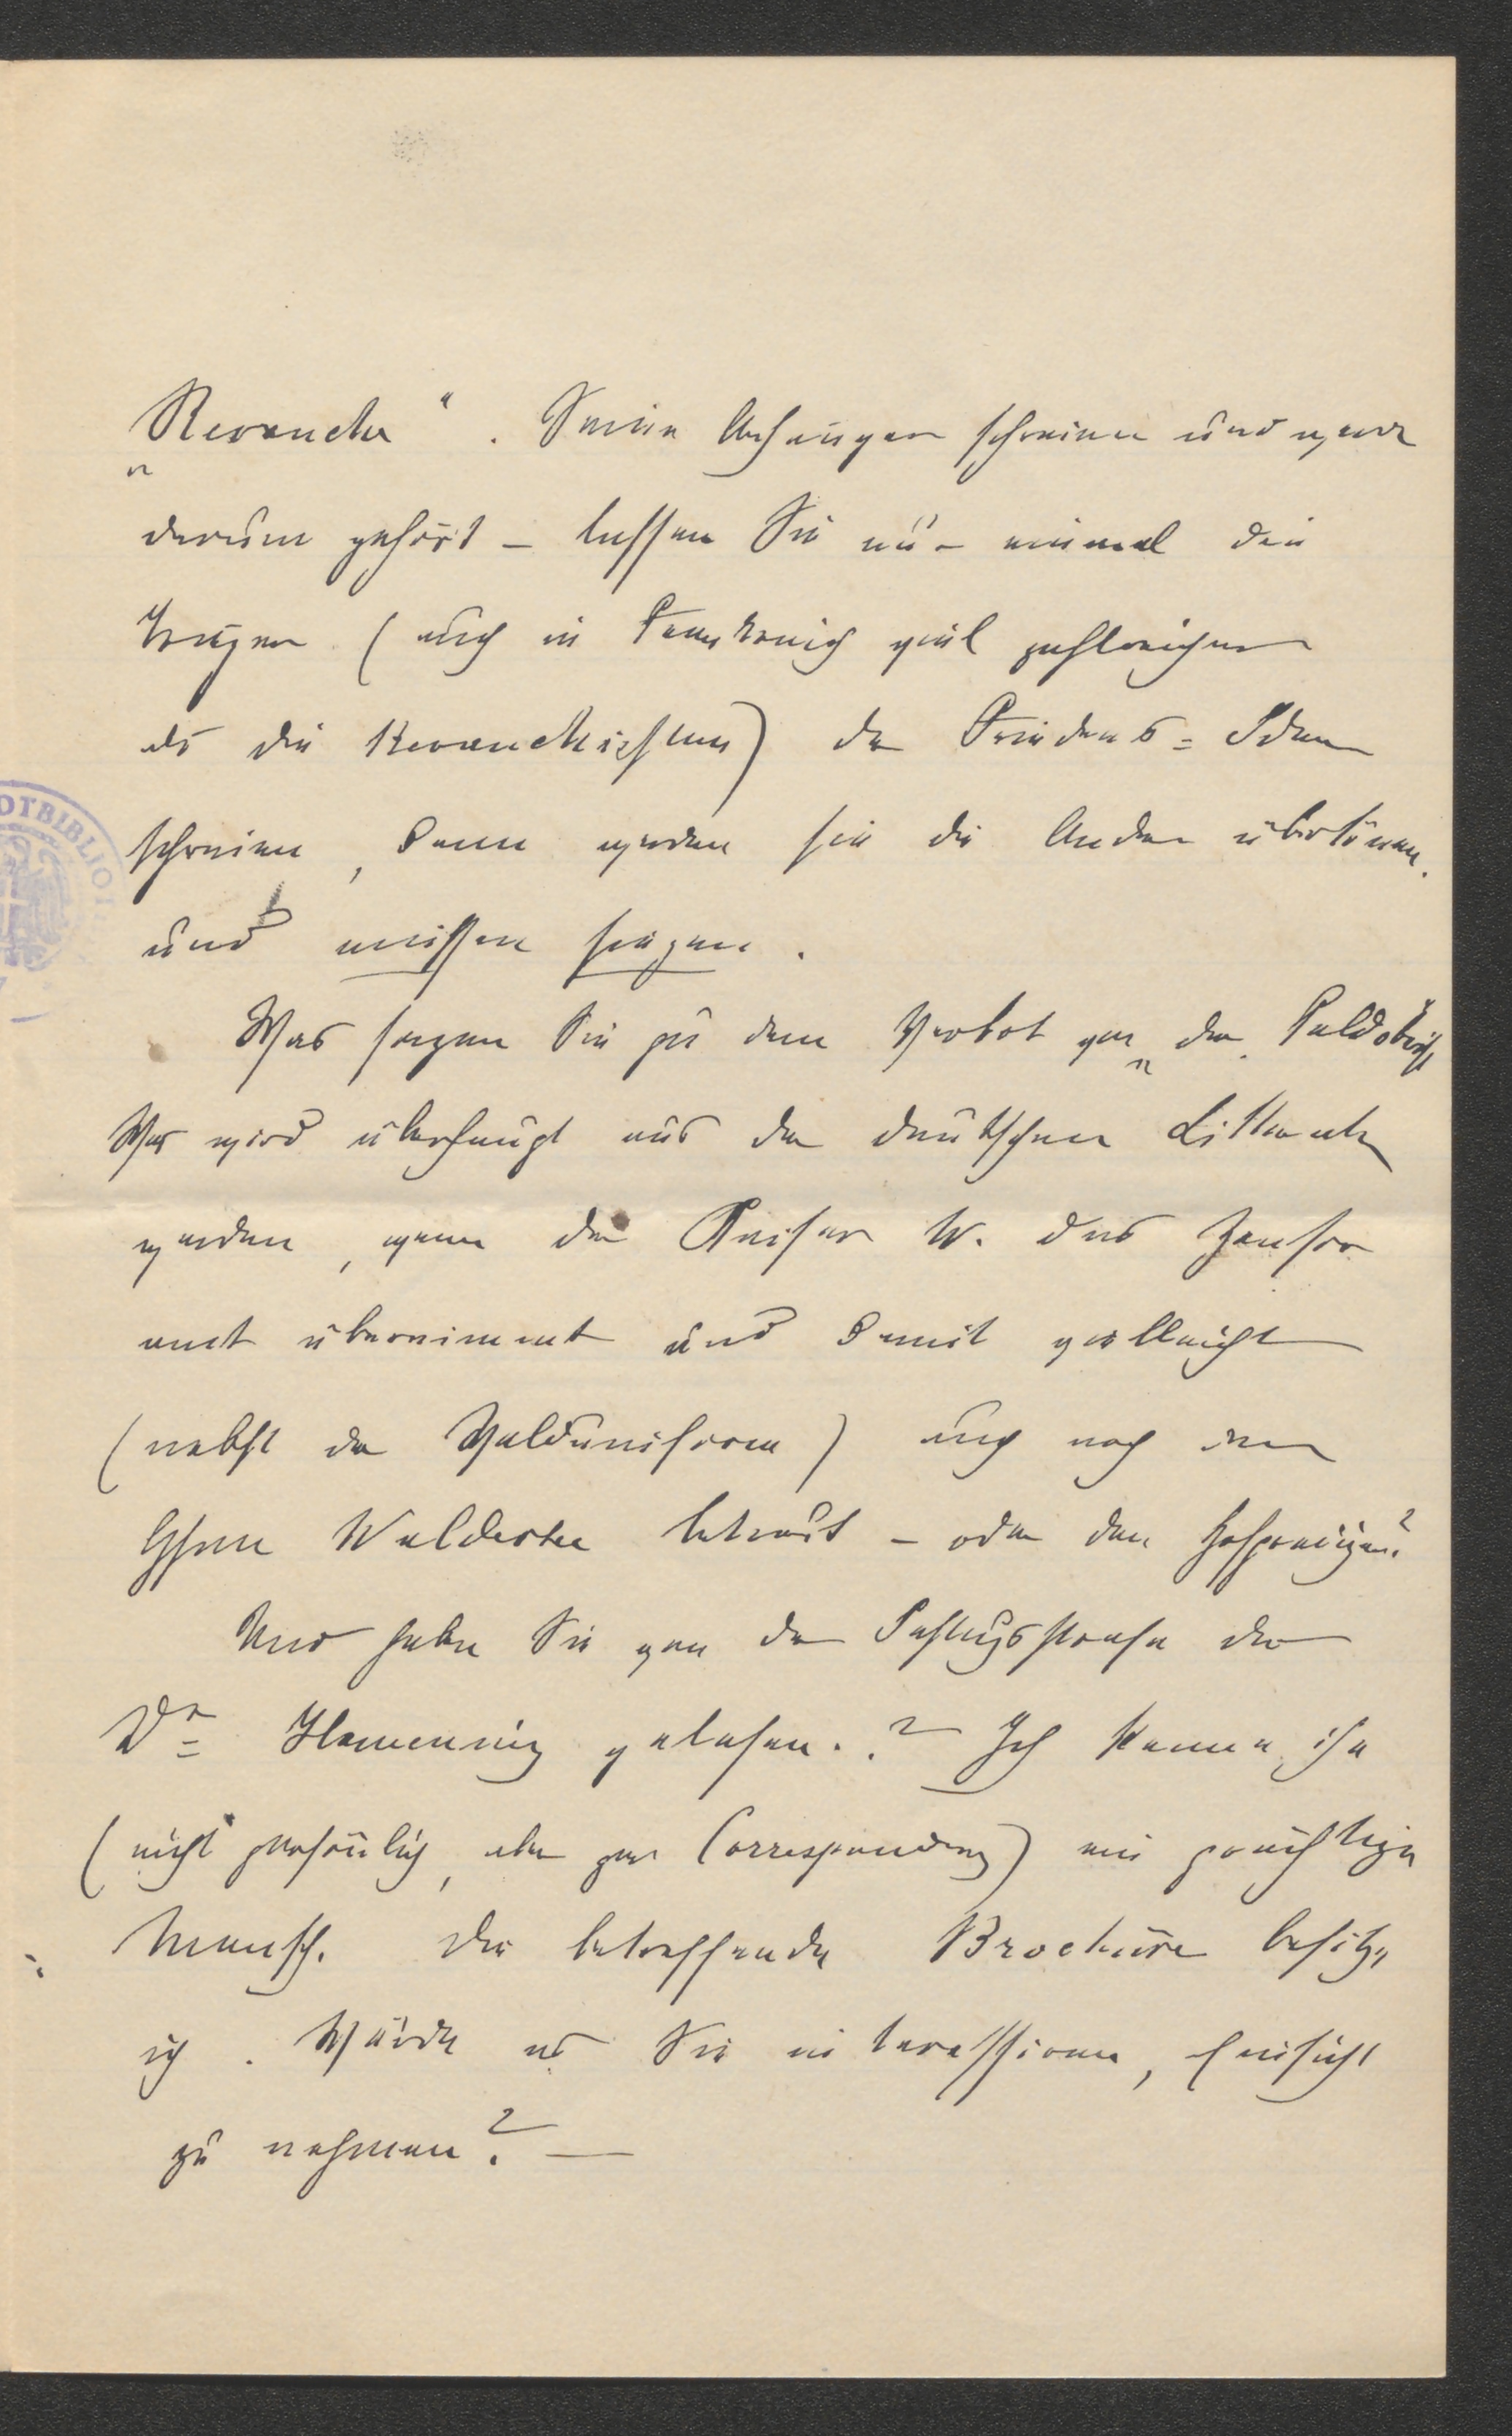 „Revanche“. Seine Anhänger schreien und werden
darum gehört – lassen Sie nur einmal die
Träger (auch in Frankreich viel zahlreicher
als die Revanchisten) der Friedens=Idee
schreien, dann werden sie die Andern übertönen.
und müssen siegen.
Was sagen Sie zu dem Verbot von „der
Was wird überhaupt aus der deutschen Litteratur
werden, wenn der Kaiser W. das Zensor
amt übernimmt und damit vielleicht
(nebst der Walduniform) auch noch den
Waldersee betraut – oder den Hofprediger?
Und haben Sie von der Festungsstrafe des
Dr. gelesen? Ich kenne ihn
(nicht persönlich, aber per Correspondenz) ein prächtiger
Mensch. Die betreffende Brochüre besitze
ich. Würde es Sie interessiren, Einsicht
zu nehmen? —
OTBIBLIOT